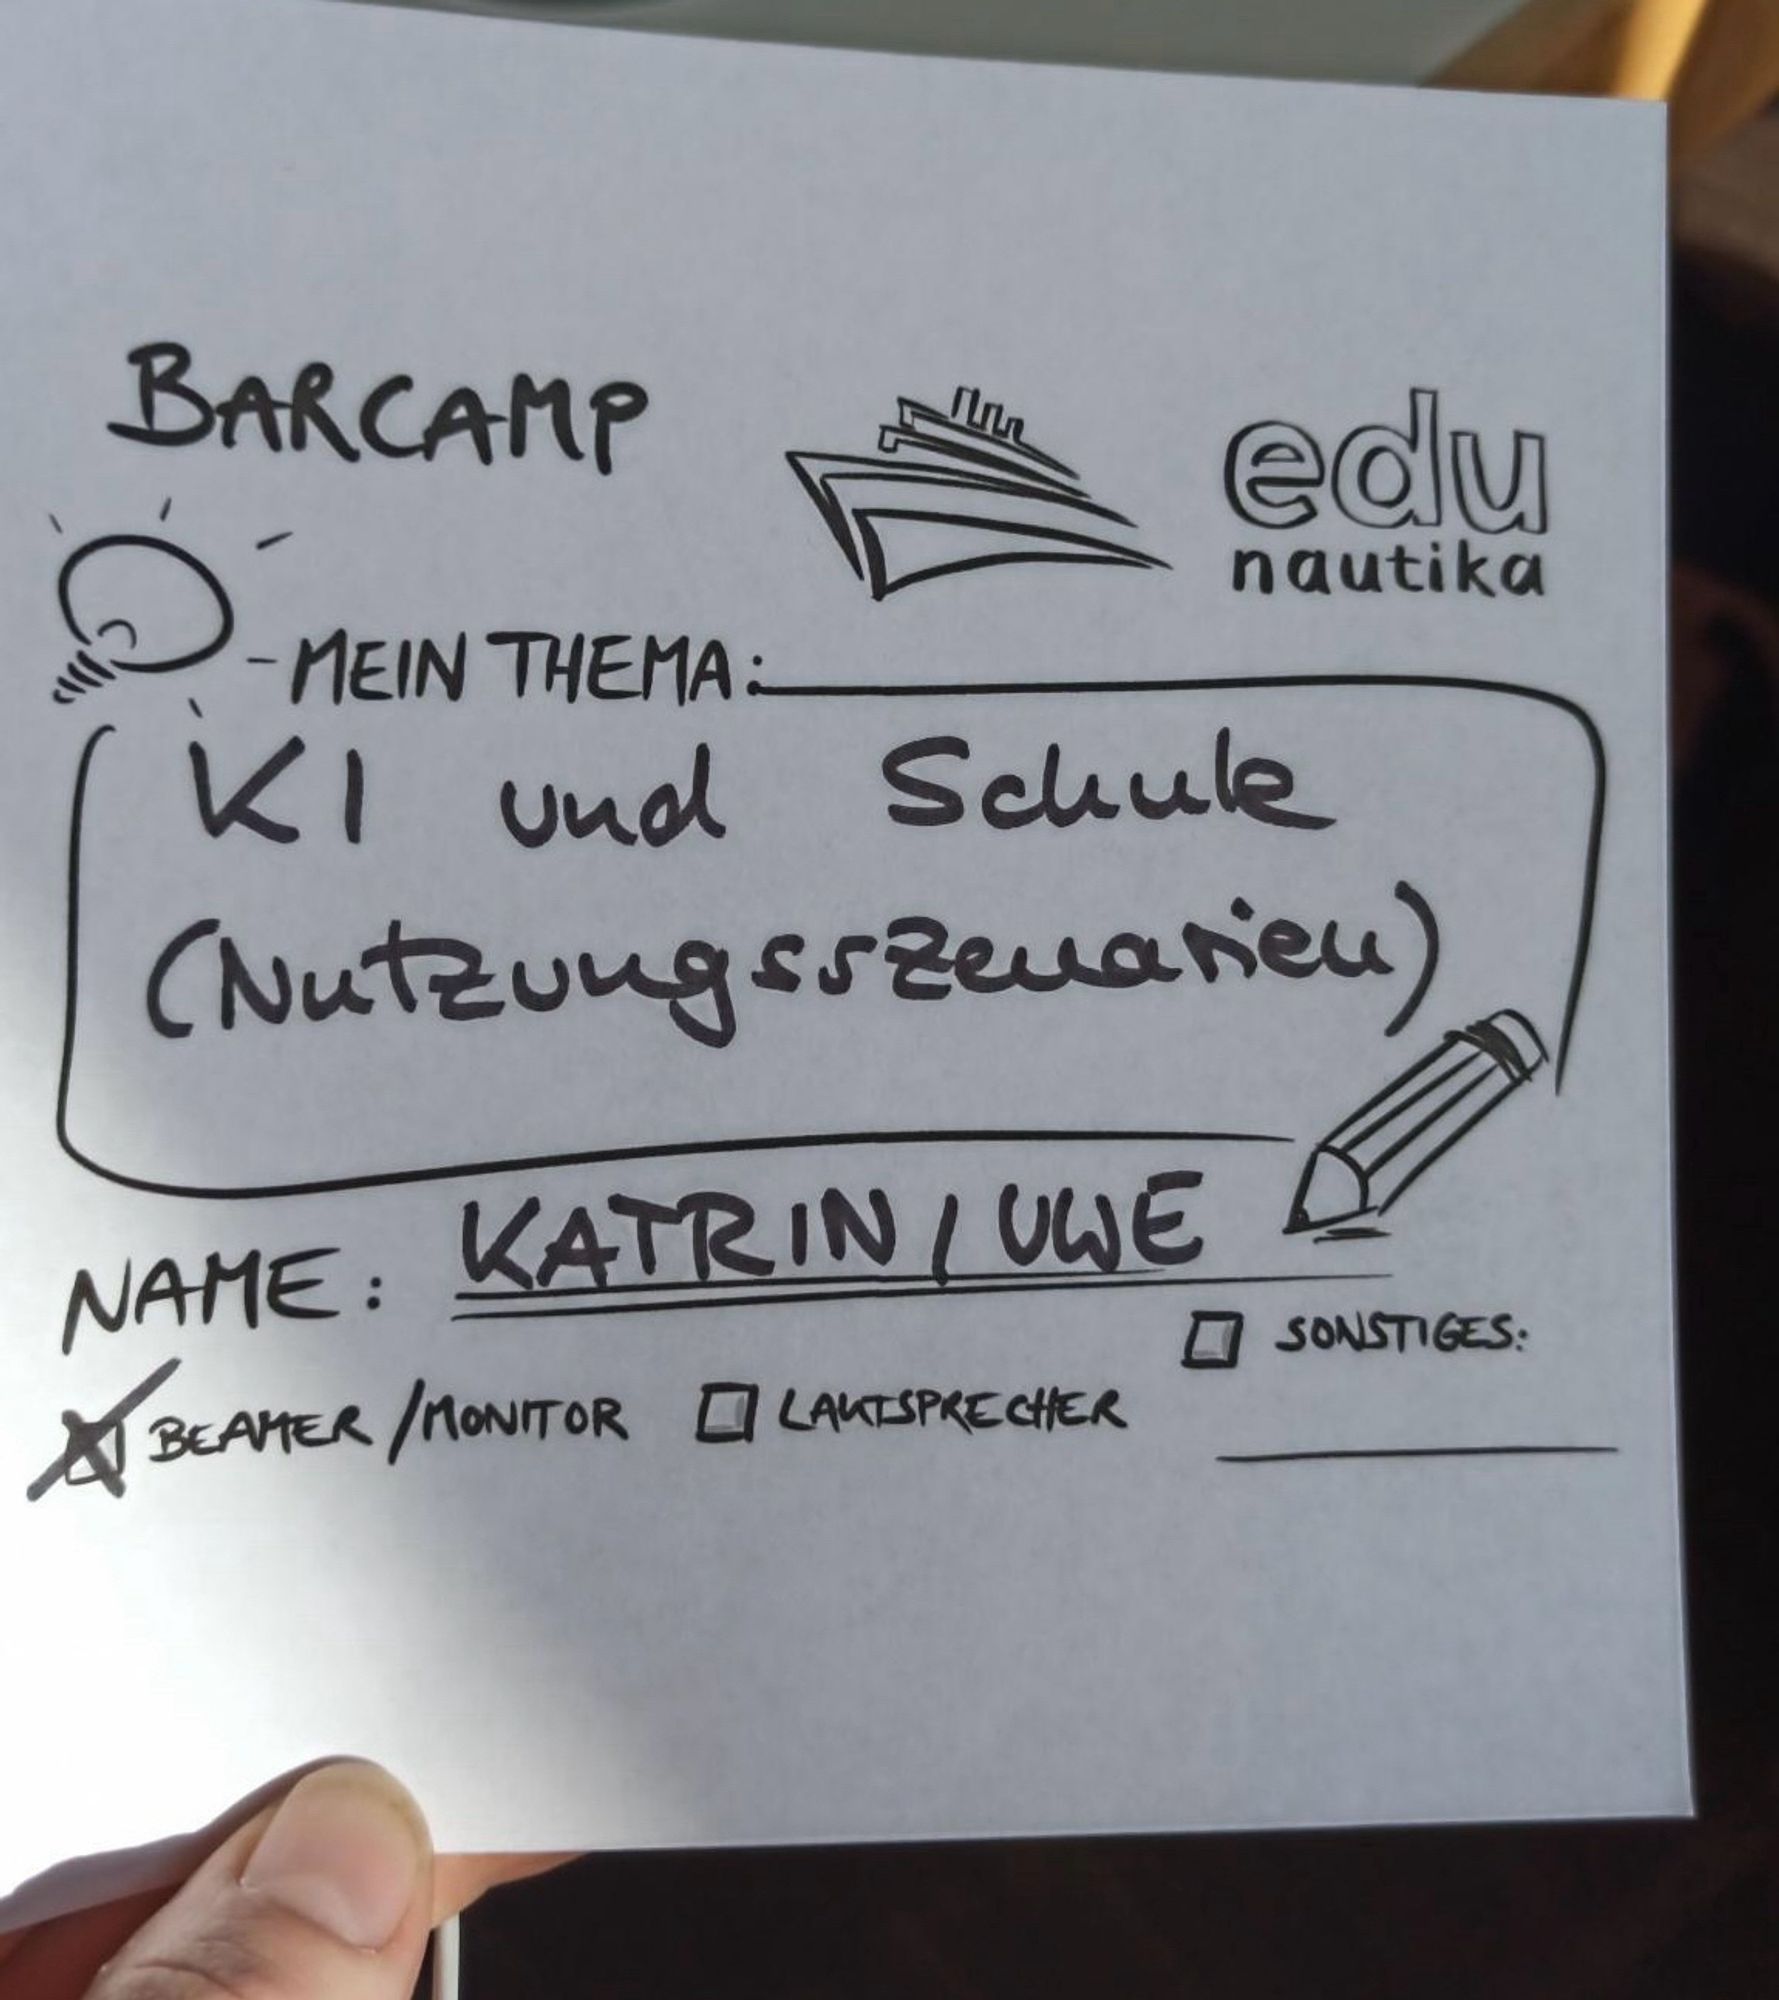 BARCAMP
edu
nautika
-MEIN THEMA:
KI und Schule
(Nutzungsszenarien)
NAME: KATRIN / UWE
SONSTIGES:
BEAMER/MONITOR LAUTSPRECHER